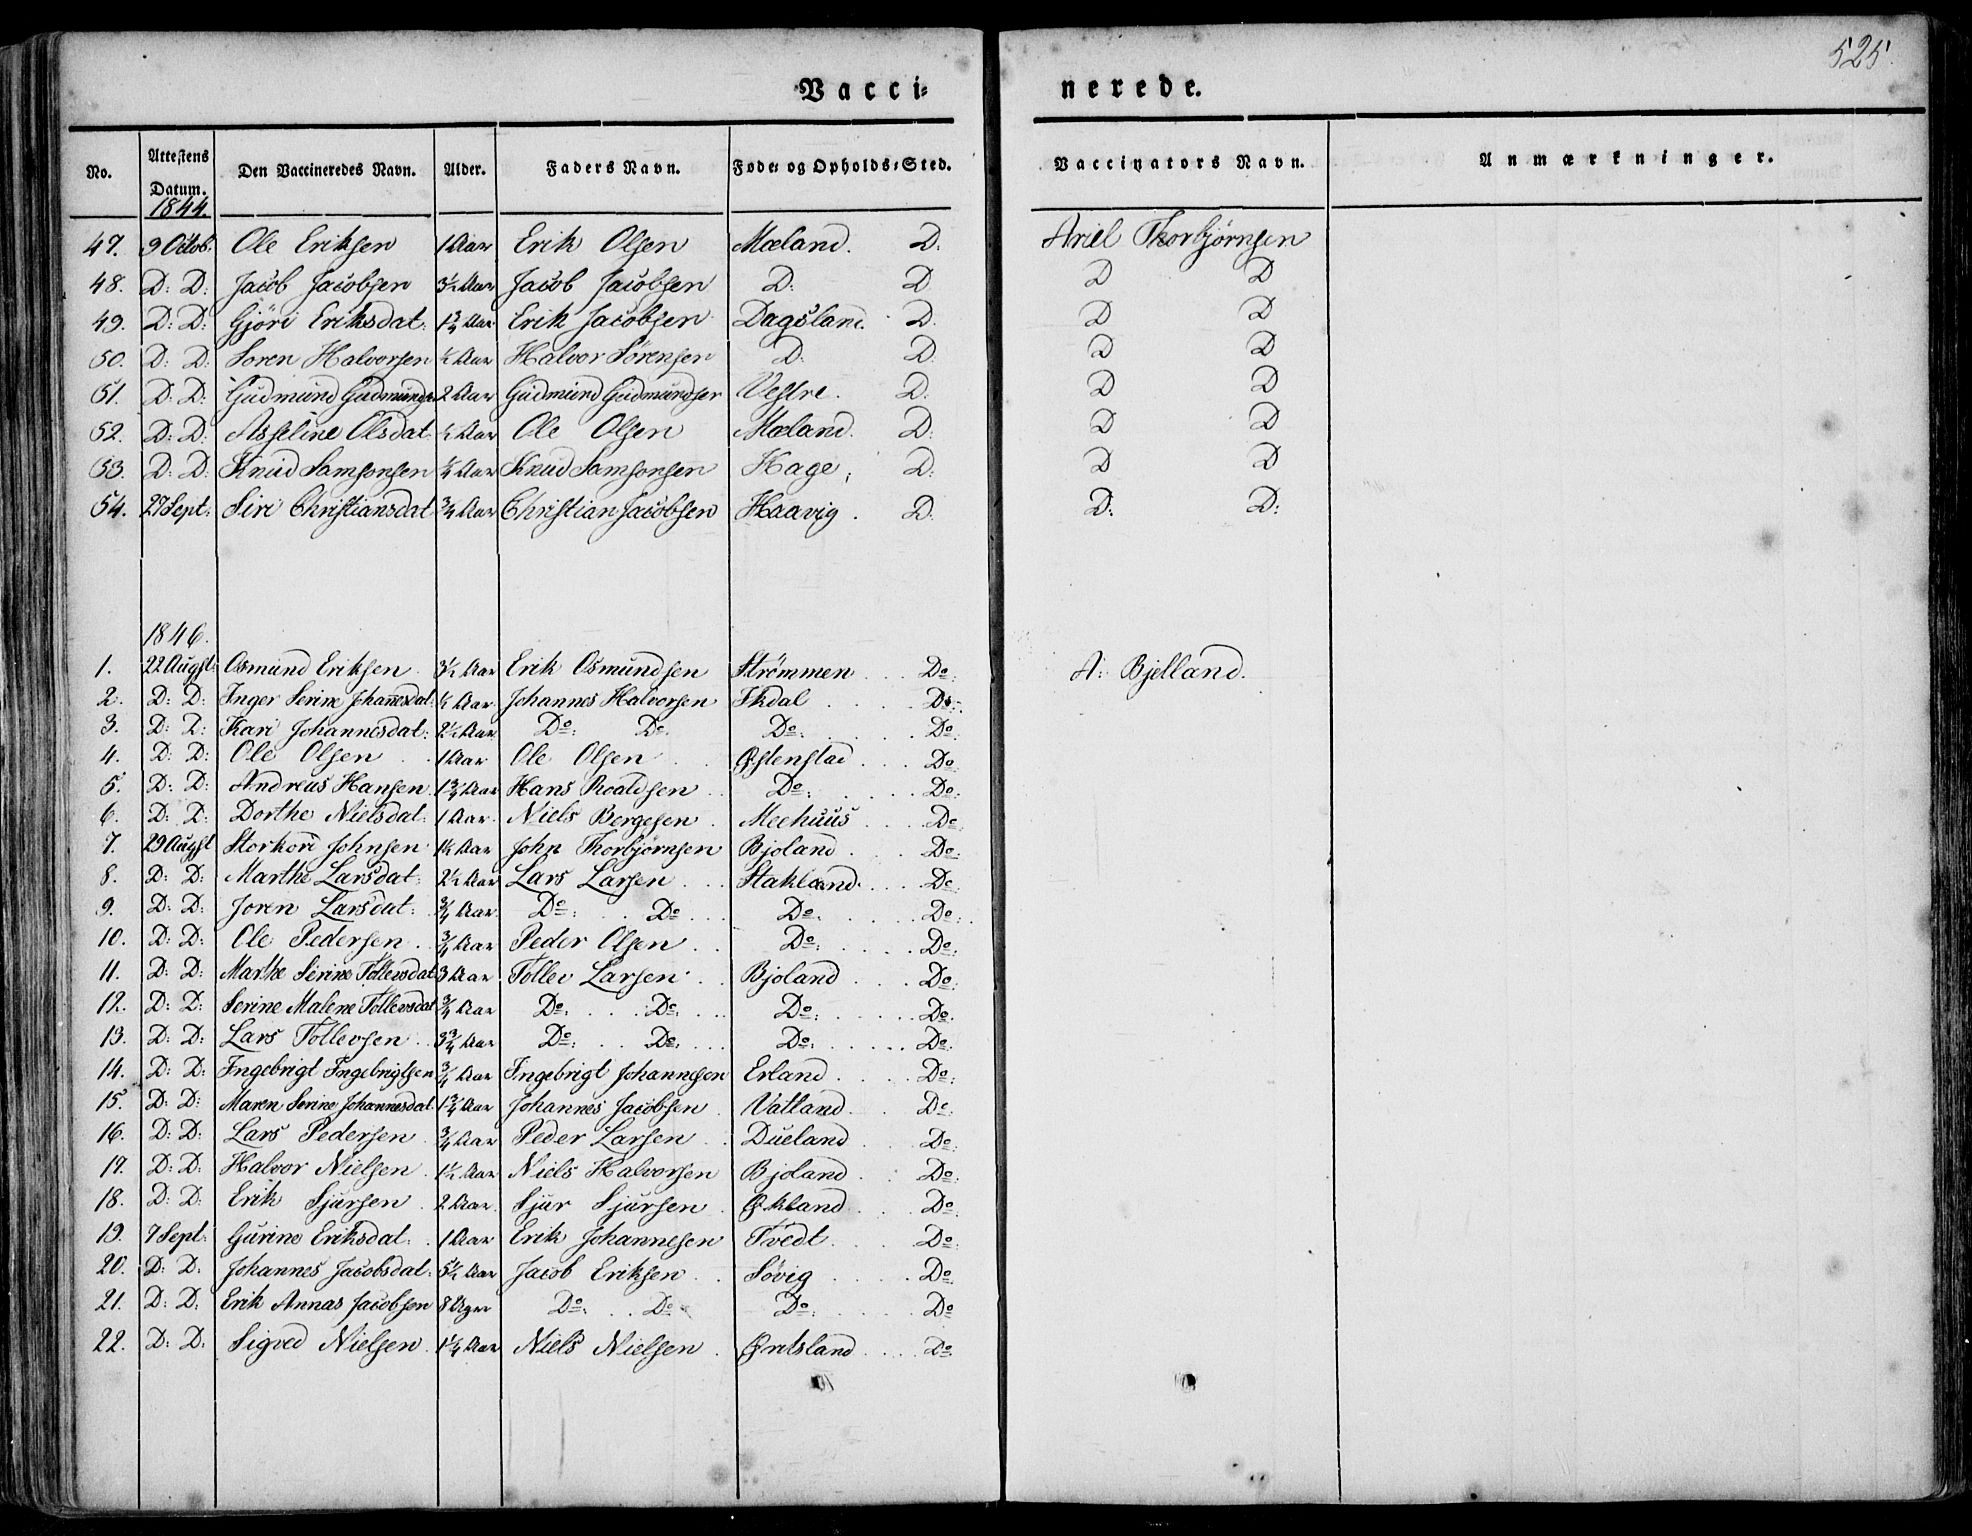 525.
Vacci= nerede.
No. Attestens Datum. Den Vaccineredes Navn. Alder. Faders Navn. Føde= og Opholds=Sted. Vaccinators Navn. Anmærkninger.
1844.
47. 9 Octob: Ole Eriksen 1 Aar Erik Olsen Mæland. D: Ariel Thorbjørnsen
48. D: D: Jacob Jacobsen 3½ Aar Jacob Jacobsen D: D D D
49. D: D: Gjöri Eriksdat: 1¾ Aar Erik Jacobsen Dagsland. D. D D
50. D: D: Soren Halvorsen ½ Aar Halvor Sörensen D: D: D D
51. D: D: Gudmund Gudmundsen 2 Aar Gudmund Gudmundsen Vestre. D: D D
52. D: D: Asseline Olsdat. ½ Aar Ole Olsen Mæland. D: D D
53. D: D: Knud Samsonsen ¼ Aar Knud Samsonsen Hage, D: D D
54. 27 Sept: Siri Christiansdat ¾ Aar Christian Jacobsen Haavig. D. D: D:
1846.
1. 22 Augst: Osmund Eriksen 3½ Aar Erik Osmundsen Strömmen Do: A: Bjelland.
2. D: D: Inger Serine Johannesdat: ½ Aar Johannes Halvorsen Ikdal Do:
3. D: D: Kari Johannesdat: 2½ Aar Do: Do. Do: Do:
4. D: D: Ole Olsen 1 Aar Ole Olsen Østenstad Do
5. D: D: Andreas Hansen 1¾ Aar Hans Roaldsen Do: Do:
6. D: D: Dorthe Nielsdat: 1 Aar Niels Bergesen Meehuus Do
7. 29 Augst Storkori Johnsen 1¼ Aar John Thorbjörnsen Bjoland Do:
8. D: D: Marthe Larsdat: 2½ Aar Lars Larsen Stakland Do:
9. D: D: Joren Larsdat: ¾ Aar Do: Do Do: Do:
10. D: D: Ole Pedersen ¾ Aar Peder Olsen Do: Do:
11. D: D: Marthe Serine Tollevsdat 3 Aar Tollev Larsen Bjoland Do:
12. D: D: Serine Malene Tollevsdat ¾ Aar Do: Do: Do: Do.
13. D: D: Lars Tollevsen 3¾ Aar Do: Do: Do: Do:
14. D: D: Ingebrigt Ingebrigtsen ¾ Aar Ingebrigt Johannesen Erland Do:
15. D: D: Maren Serine Johannesdat. 1¾ Aar Johannes Jacobsen Vatland Do:
16. D: D: Lars Pedersen ¾ Aar Peder Larsen Dueland Do:
17. D: D: Halvor Nielsen 1½ Aar Niels Halvorsen Bjoland Do:
18. D: D: Erik Sjursen 2 Aar Sjur Sjursen Økland Do:
19. 7 Sept: Gurine Eriksdat: 1 Aar Erik Johannesen Tvedt Do:
20. D: D: Johannes Jacobsdat: 5½ Aar Jacob Eriksen Sövig Do:
21. D: D: Erik Annas Jacobsen 8 Uger Do: Do Do: Do
22. D: D: Sigved Nielsen 1¼ Aar Niels Nielsen Øretsland Do: